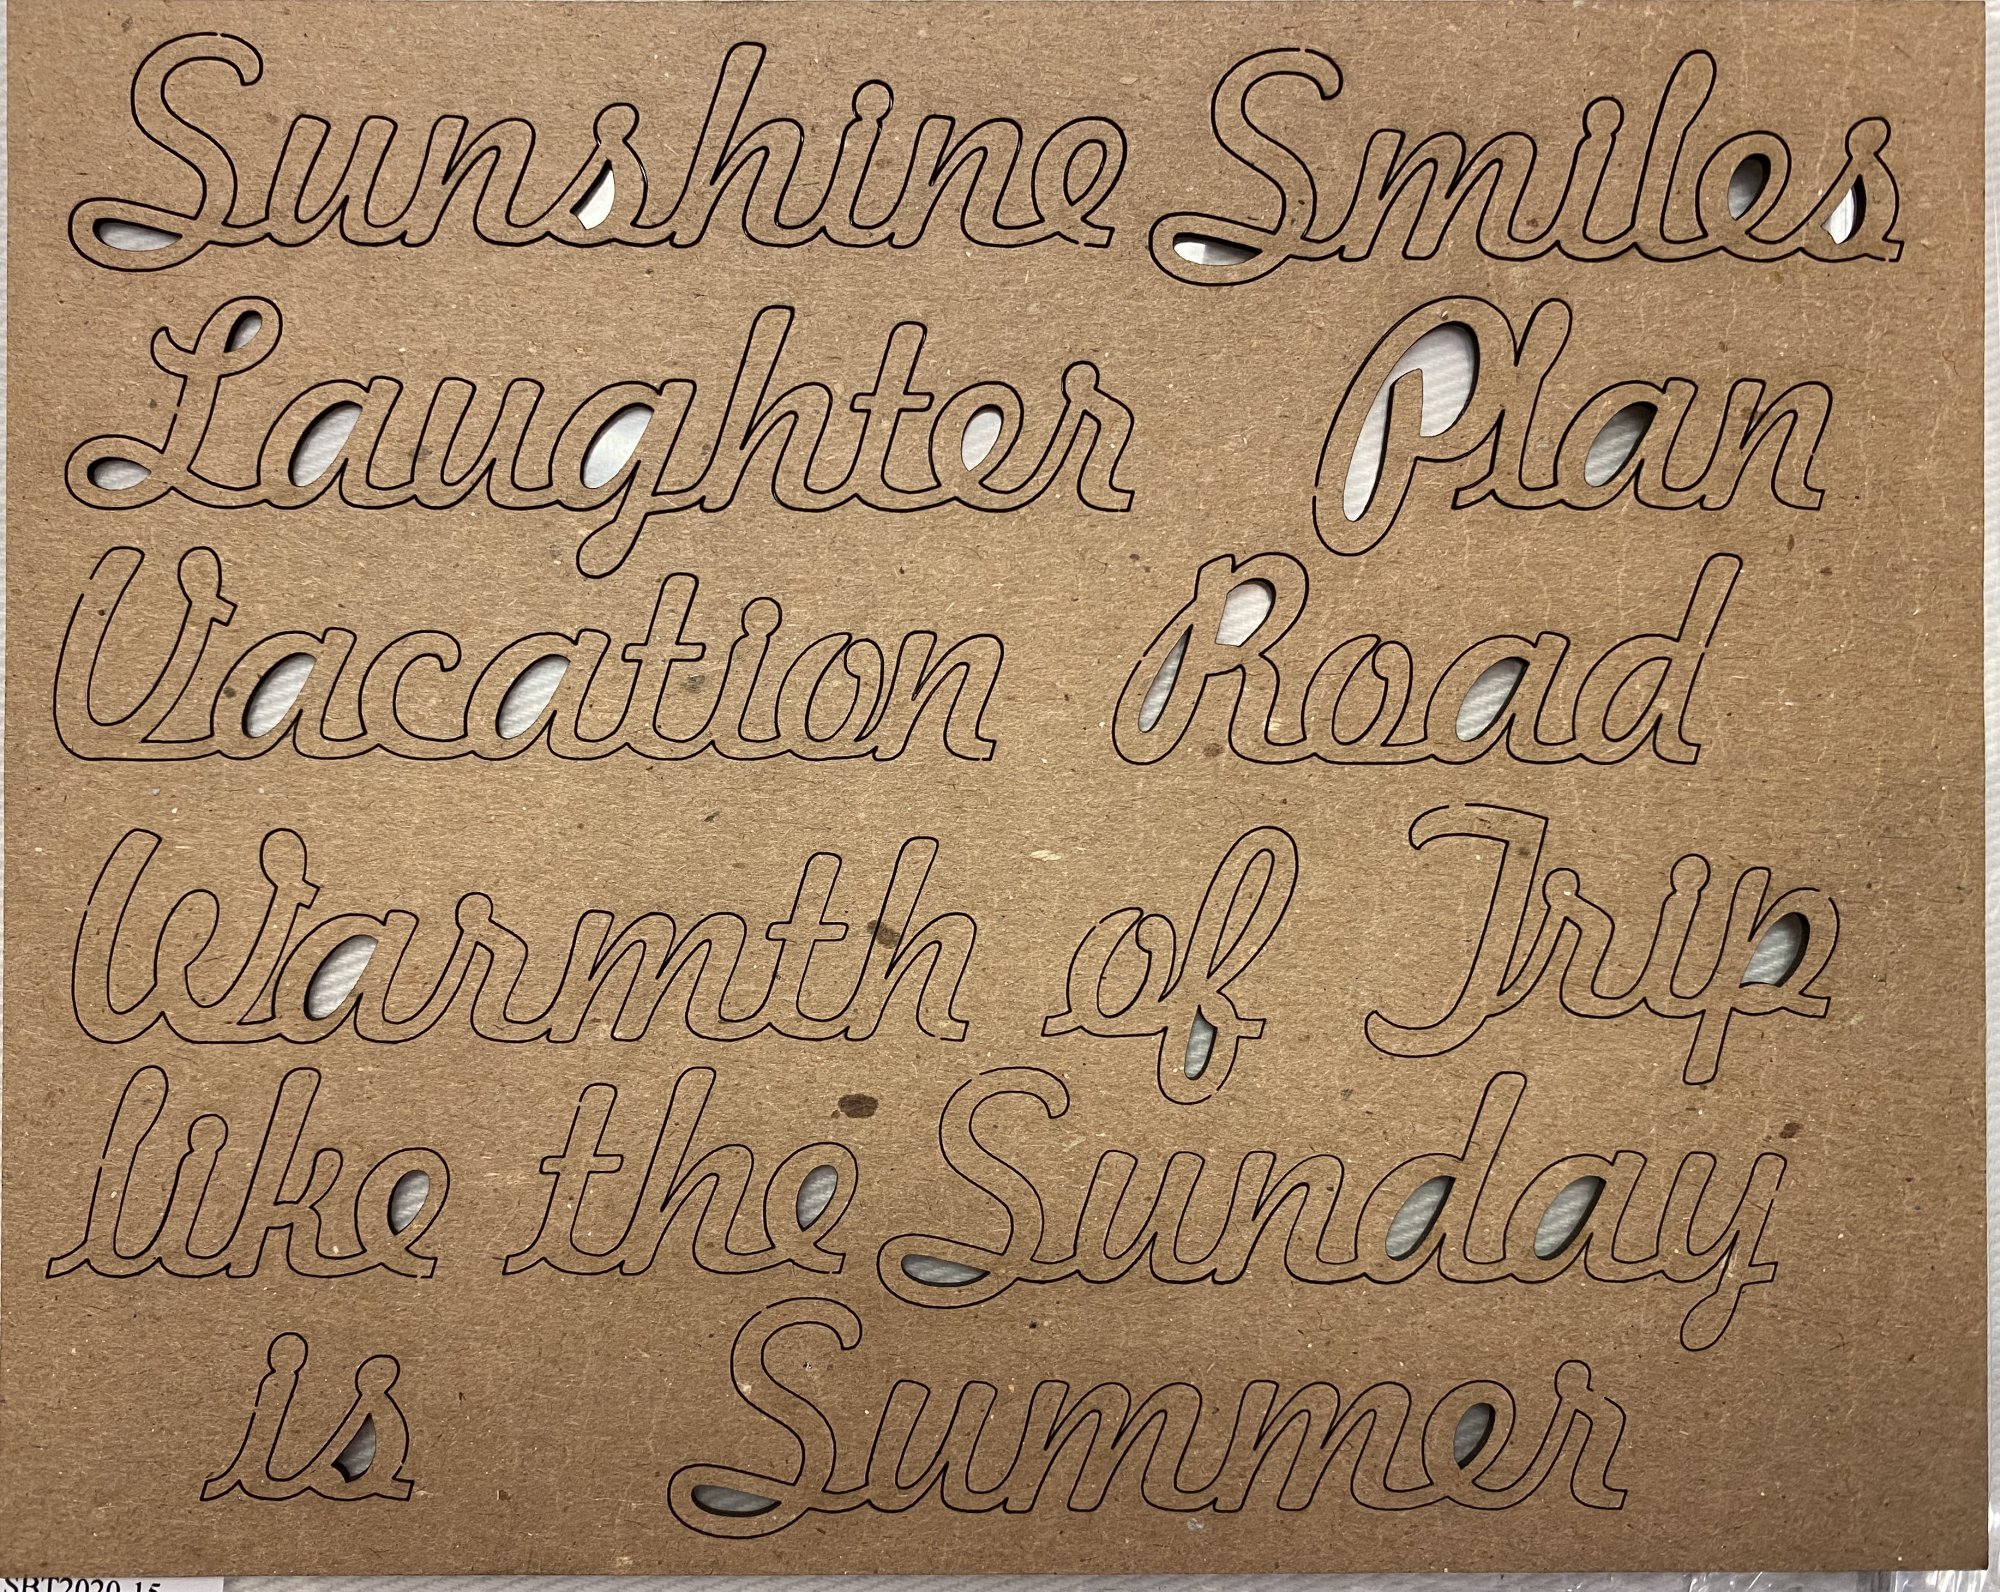 Sunshine Smiles
Laughter Plan
Vacation Road
Warmth of Trip
like the Sunday
is Summer
SBT2020-15